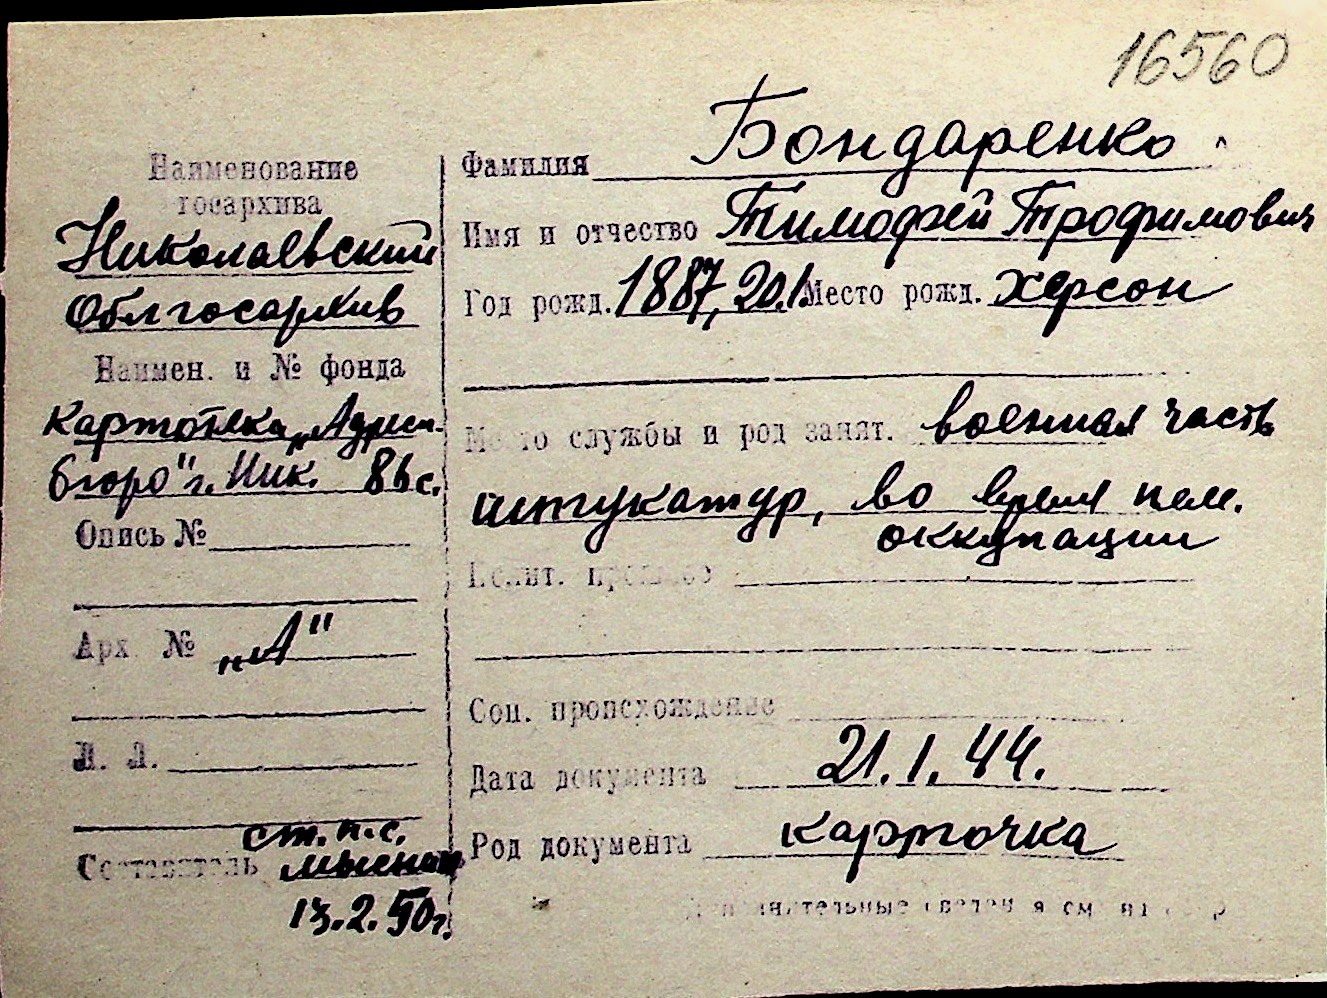 16560
Наименование
госархива
Николаевский
Облгосархив
Наимен. и № фонда
Картотека „Адрес-
бюро" г. Ник. 86 с.
Опись №
Арх №
„А"
Л. Л.
ст. п.с.
Составитель
13.2.50г.
Фамилия Бондаренко
Имя и отчество Тимофей Трофимович
Год рожд. 1887, 20.1 Место рожд. Херсон
Место службы и род занят. военная часть
штукатур, во время нем.
оккупации
Полит. прошлое
Соц. происхождение
Дата документа 21.1.44.
Род документа карточка
Дополнительные сведения см. на обор